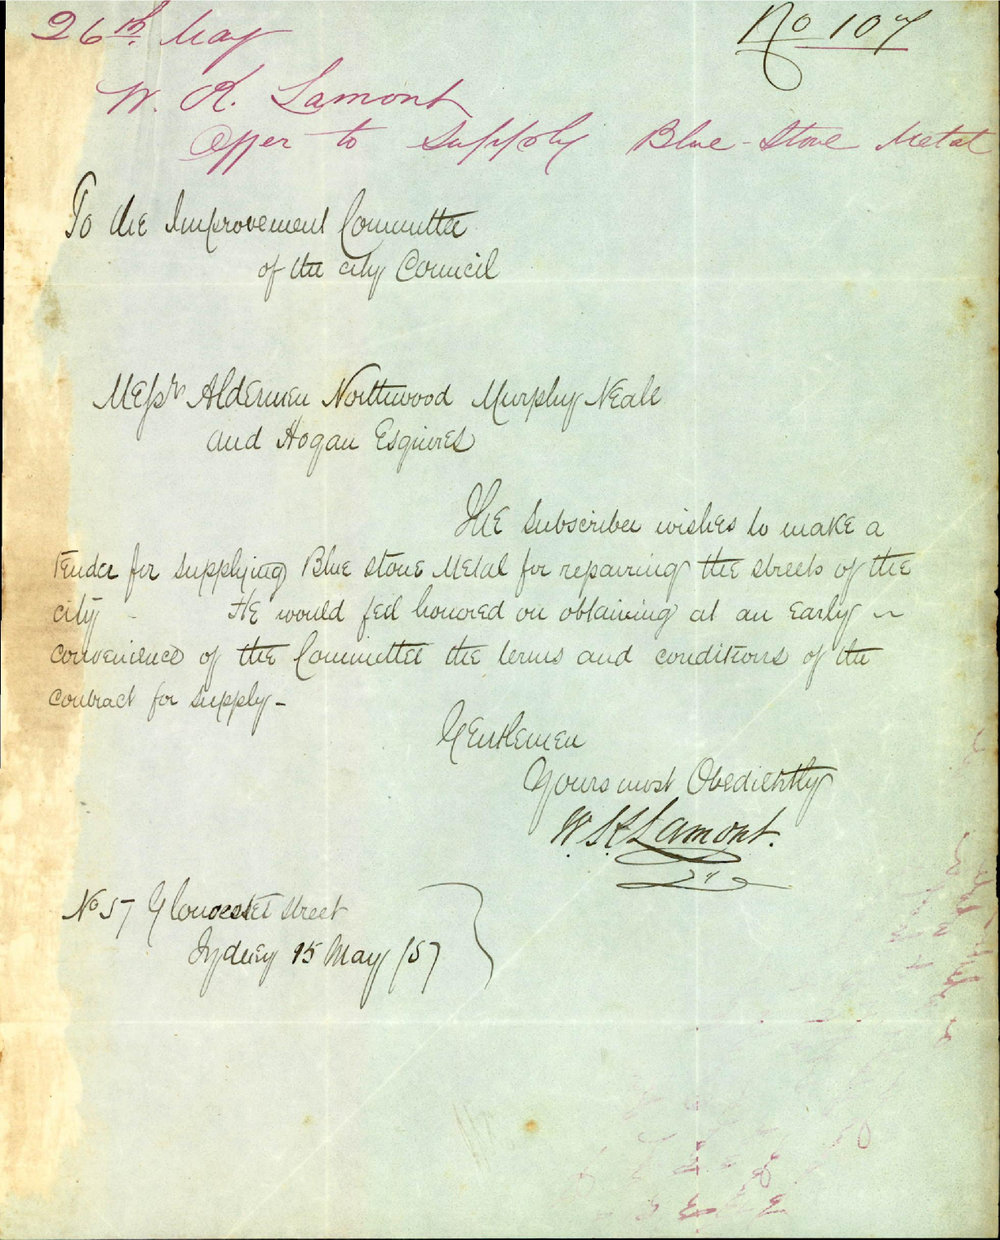 No 107
26th May
W. K. Lamont
Offer to supply Blue-Stone Metal
To the Improvement Committee
of the city Council
Messrs Aldermen Northwood Murphy Neale
and Hogan Esquires
The subscriber wishes to make a
Tender for supplying Blue stone Metal for repairing the streets of the
city - He would feel honored on obtaining at an early
convenience of the Committee the terms and conditions of the
contract for supply -
Gentlemen
Yours most Obediently
W. K. Lamont.
No 57 Gloucester street
Sydney 15 May /57